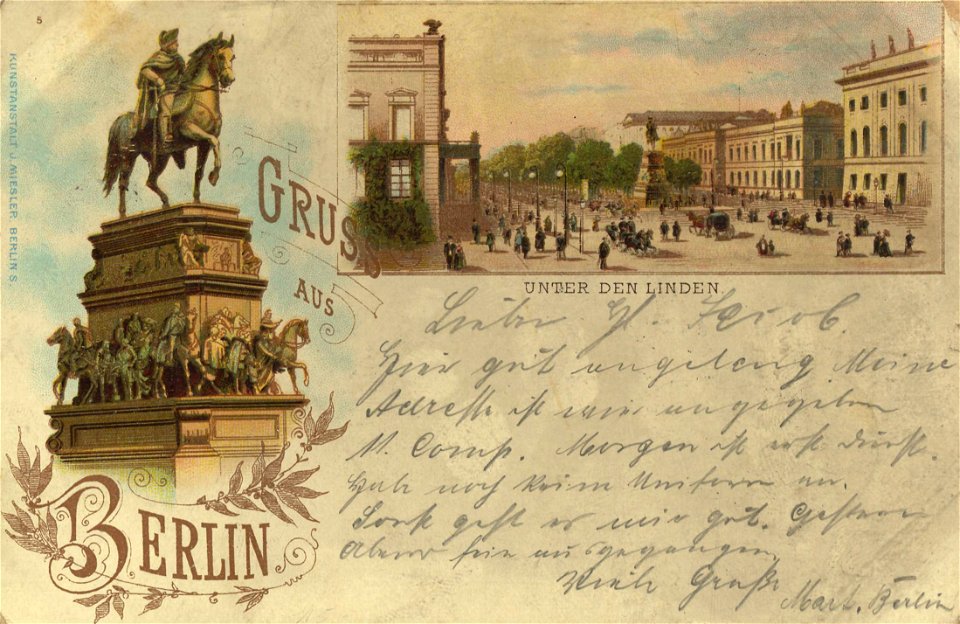 5
KUNSTANSTALT J. MIESLER BERLIN S
GRUSS
AUS
BERLIN
UNTER DEN LINDEN.
Lieber H. Jacob.
Hier gut angelang Meine
Adresse ist wie angegeben
11. Comp. Morgen ist erst Dienst.
Hab noch keine Uniform an.
Sonst geht es mir gut. Gestern
Abend fein ausgegangen
Viele Grüße
Mart. Berlin